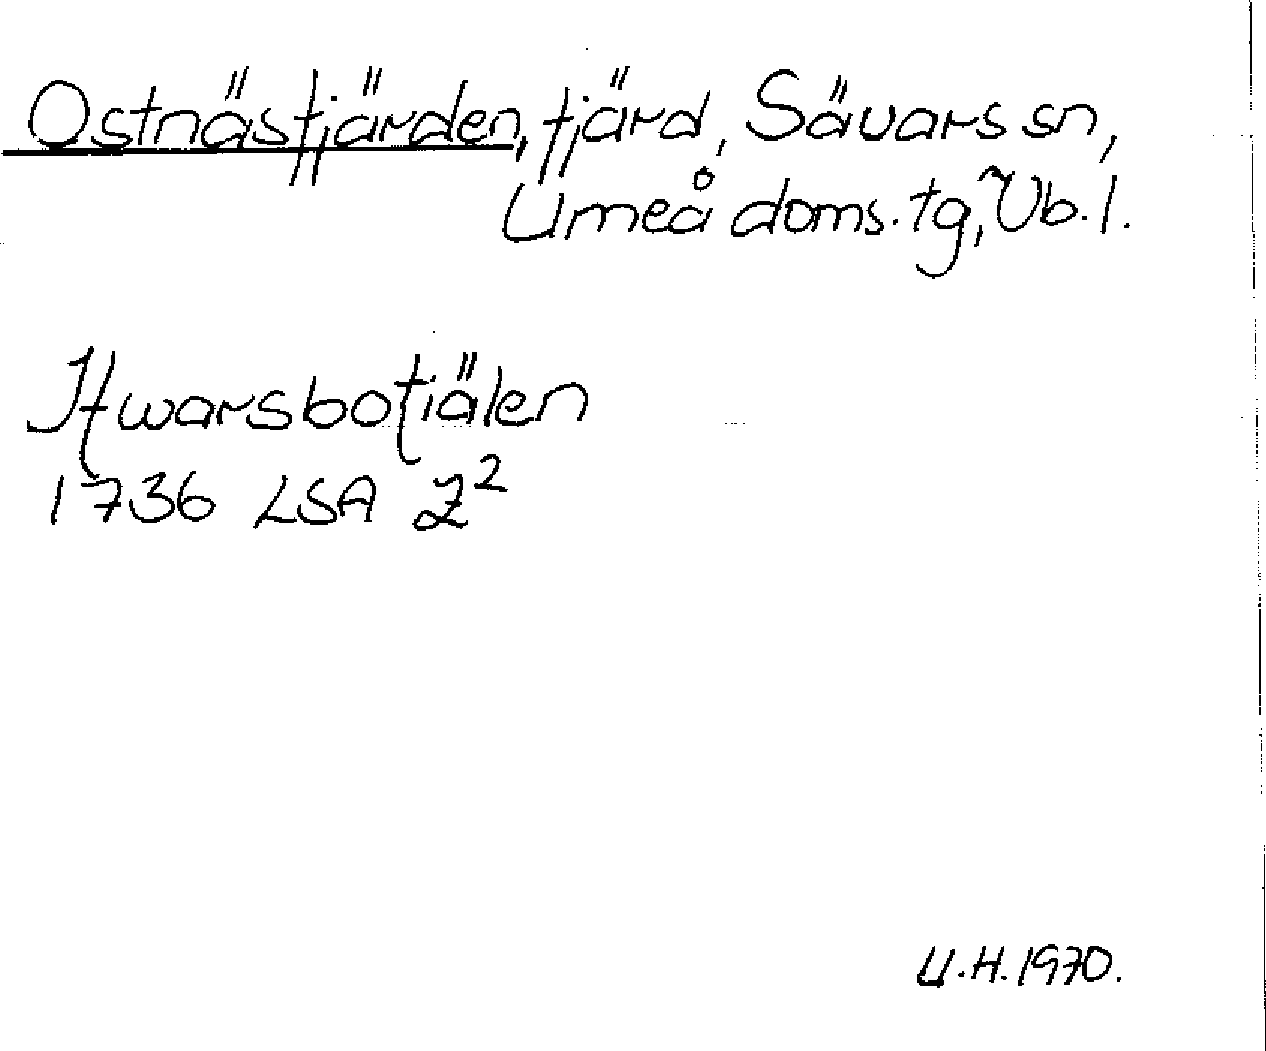 Ostnäsfjärden, fjärd, Sävars sn,
Umeå doms. tg, Vb. l.
Ifwarsbofiälen
1736 LSA Z²
U.H. 1970.